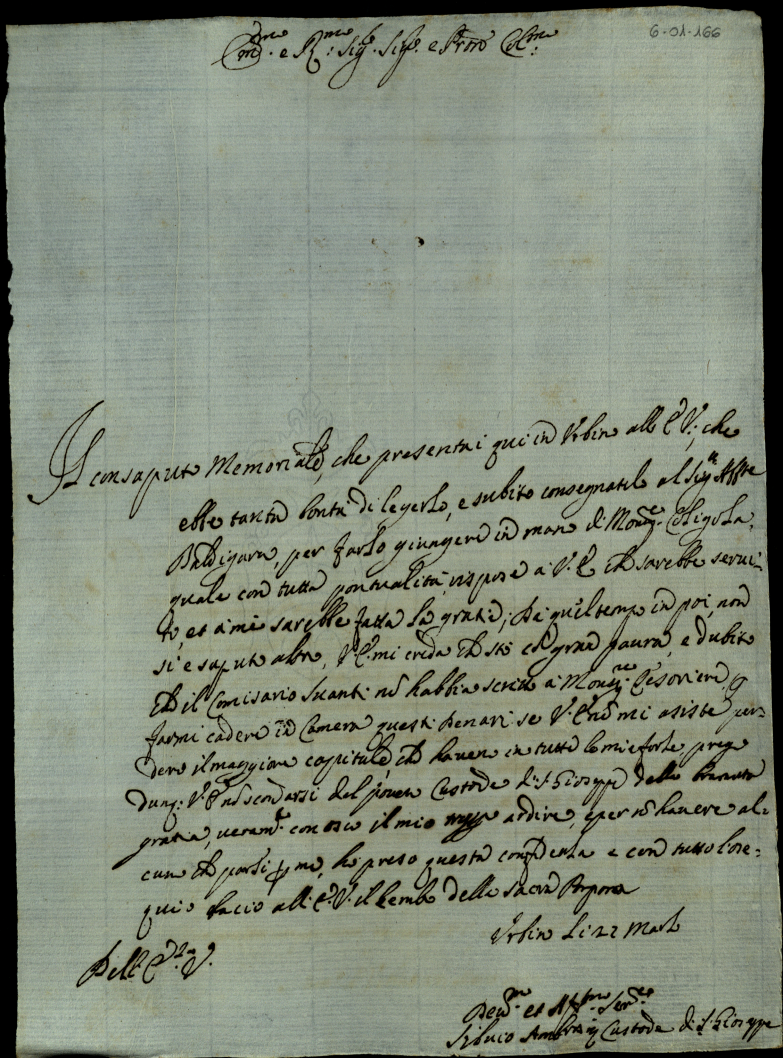 6-01-166
Em.mo e R.mo Sig.r Sig.r e Pron Col.mo
Il consaputo Memoriale, che presentai qui in Urbino all E. V., che
ebbe tanta bontà di legerlo, e subito consegnatilo al Sig.re
Baldigara, per farlo giungere in mano di Mons.re Coligola,
quale con tutta pontualità rispose a V. E. ch sarebbe servi-
to, et a me sarebbe fatta la gratia; Da quel tempo in poi, non
si è saputo altro, V. E. mi creda ch sto cō gran paura, e dubito
ch il Comisario Suanti nō habbia scritto a Mons.re Tesoriere,
farmi cadere in Camera questi denari se V. E. nō mi asiste per-
dere il maggiore capitale ch havevo in tutte le mie forse, prego
dunq. V. E. nō scordarsi del povero Custode di S. Gioseppe della bramata
gratia, veram.te conosco il mio ardire, e per nō havere al-
cuno ch parli p me, ho preso questa confidenza e con tutto l'ose-
quio bacio all E. V. il lembo della sacra Porpora
Urbino li 22 Marzo
Dell E. V.
Dev.mo et Ser.re
Silvio Custode di S. Gioseppe